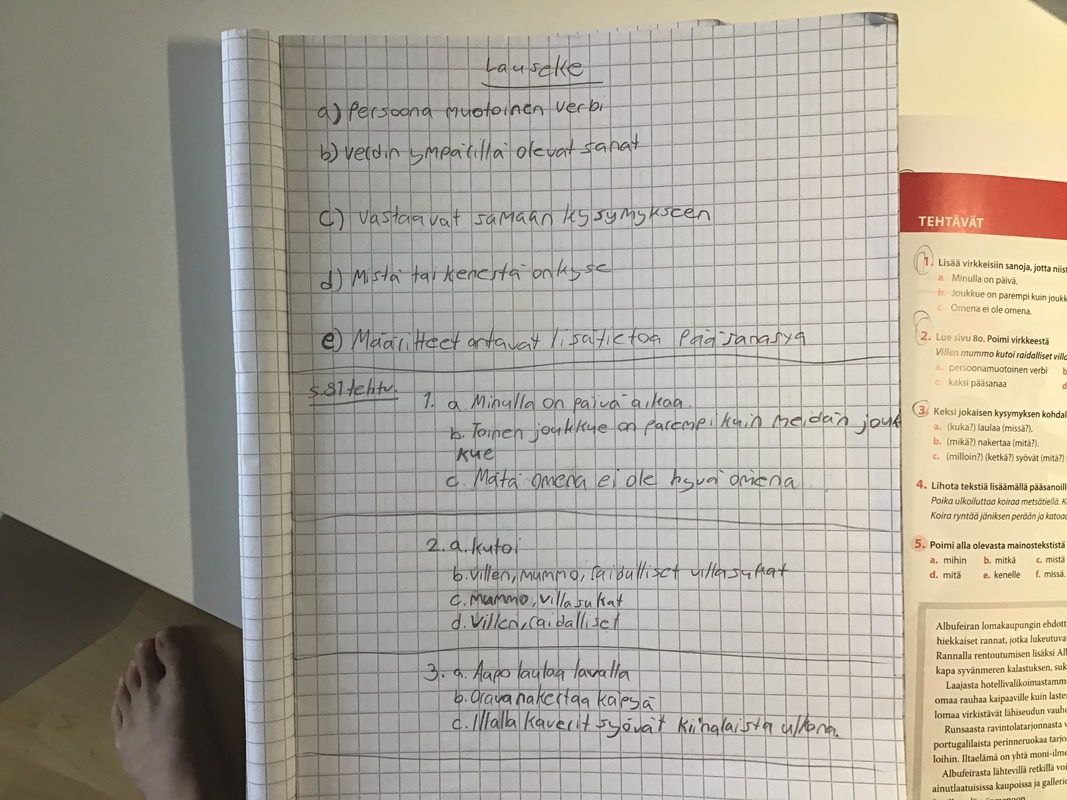 Lauseke
a) Persoona muotoinen verbi
b) verbin ympärillä olevat sanat
c) Vastaavat samaan kysymykseen
d) Mistä tai kenestä on kyse
e) Määritteet antavat lisätietoa Pääsanasya
s.81 tehtv.
1. a. Minulla on päivä aikaa.
b. Toinen joukkue on parempi kuin meidän jouk
kue
c. Mätä omena ei ole hyvä omena.
2. a. kutoi
b. villen, mummo, raidalliset villasukat
c. mummo, villasukat
d. Villen, raidalliset
3. a. Aapo laulaa lavalla
b. Orava nakertaa käpyä
c. Illalla kaverit syövät kiinalaista ulkona.
TEHTÄVÄT
1. Lisää virkkeisiin sanoja, jotta niist
a. Minulla on päivä.
b. Joukkue on parempi kuin joukk
c. Omena ei ole omena.
2. Lue sivu 80. Poimi virkkeestä
Villen mummo kutoi raidalliset villa
a. persoonamuotoinen verbi b
c. kaksi pääsanaa d
3. Keksi jokaisen kysymyksen kohdal
a. (kuka?) laulaa (missä?).
b. (mikä?) nakertaa (mitä?).
c. (milloin?) (ketkä?) syövät (mitä?)
4. Lihota tekstiä lisäämällä pääsanoill
Poika ulkoiluttaa koiraa metsätiellä. K
Koira ryntää jäniksen perään ja katoaa
5. Poimi alla olevasta mainostekstistä
a. mihin b. mitkä c. mistä
d. mitä e. kenelle f. missä.
Albufeiran lomakaupungin ehdott
hiekkaiset rannat, jotka lukeutuva
Rannalla rentoutumisen lisäksi Al
kapa syvänmeren kalastuksen, suk
Laajasta hotellivalikoimastamm
omaa rauhaa kaipaaville kuin laste
lomaa virkistävät lähiseudun vauh
Runsaasta ravintolatarjonnasta v
portugalilaista perinneruokaa tarjo
loihin. Iltaelämä on yhtä moni-ilm
Albufeirasta lähtevillä retkillä voi
ainutlaatuisissa kaupoissa ja galleri